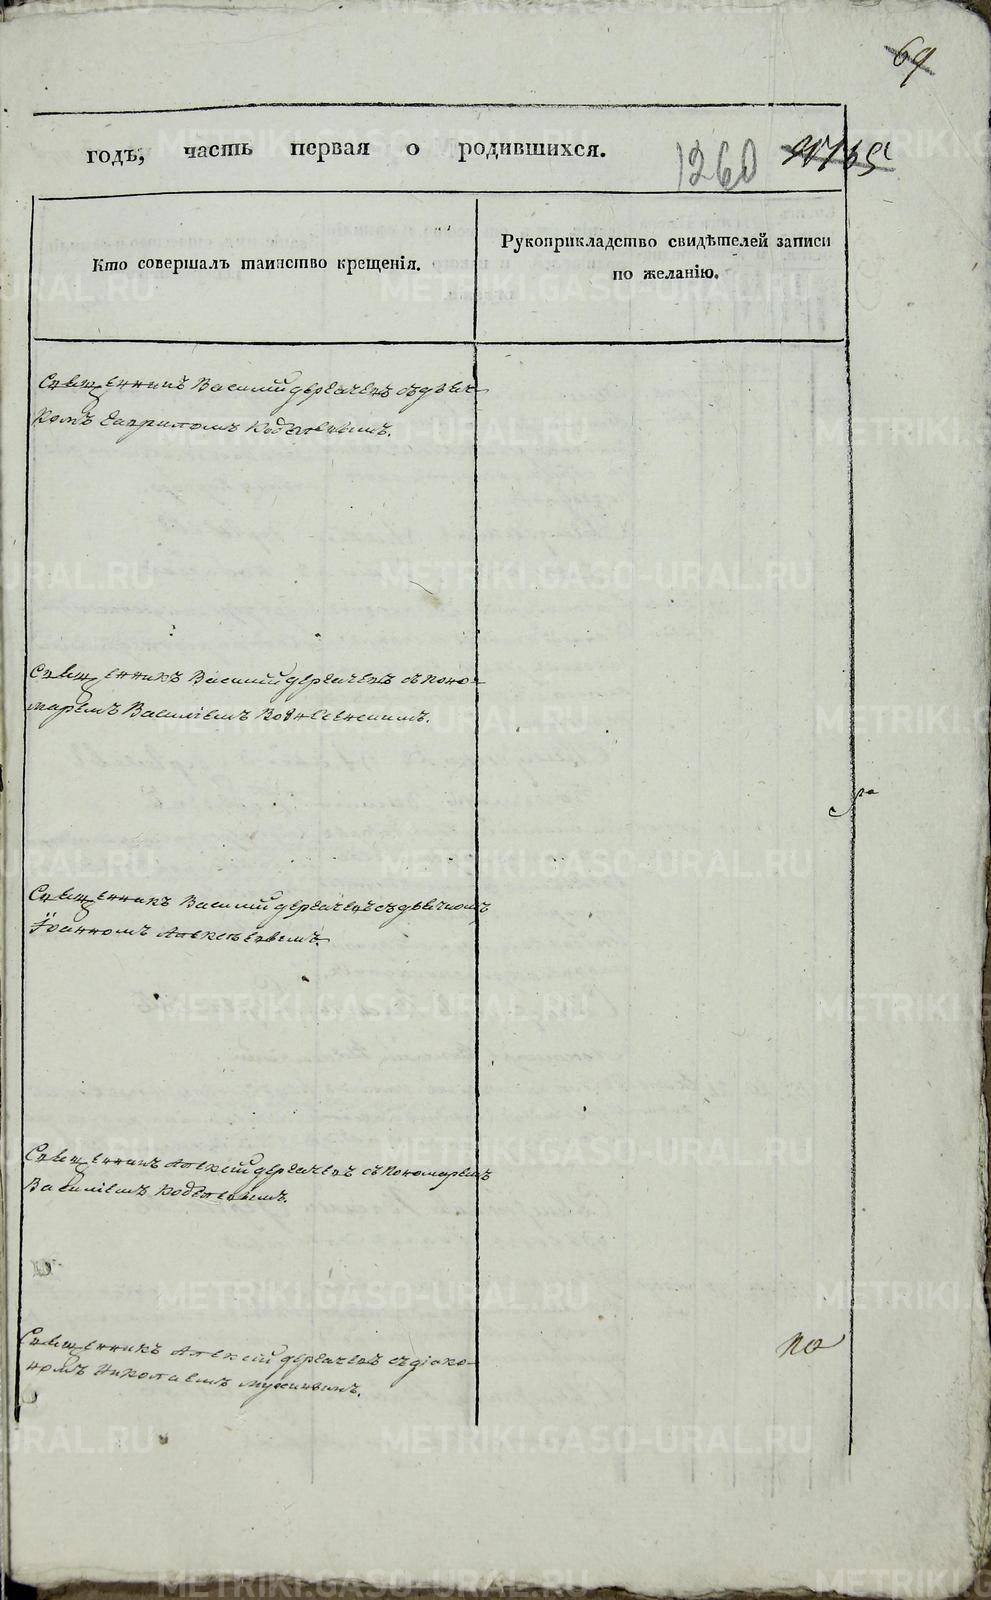 69
годъ, часть первая о родившихся. 1260
Кто совершалъ таинство крещенія.
Рукоприкладство свидѣтелей записи
по желанію.
Священникъ Василій Дергачевъ съ дьяч-
комъ Гавриломъ
Священникъ Василій Дергачевъ съ поно-
маремъ Василіемъ Вознесенскимъ.
Священникъ Василій Дергачевъ съ дьячкомъ
Іоанномъ Алексѣевымъ.
Священникъ Алексій Дергачевъ съ пономаремъ
Василіемъ
Священникъ Алексій Дергачевъ съ діако-
номъ Николаемъ
по
METRIKI.GASO-URAL.RU